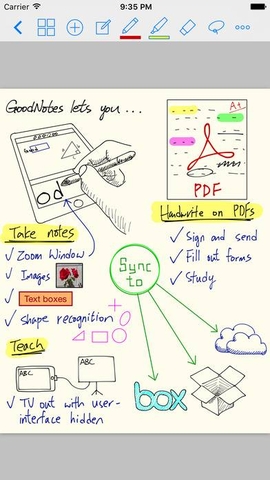 Carrier 9:35 PM
GoodNotes lets you ...
A+
PDF
Take notes
✓ Zoom Window
✓ Images
✓ Text boxes
✓ Shape recognition
Handwrite on PDFs
✓ Sign and send
✓ Fill out forms
✓ Study
Sync
to
Teach
ABC
ABC
✓ TV out with user-
interface hidden
box